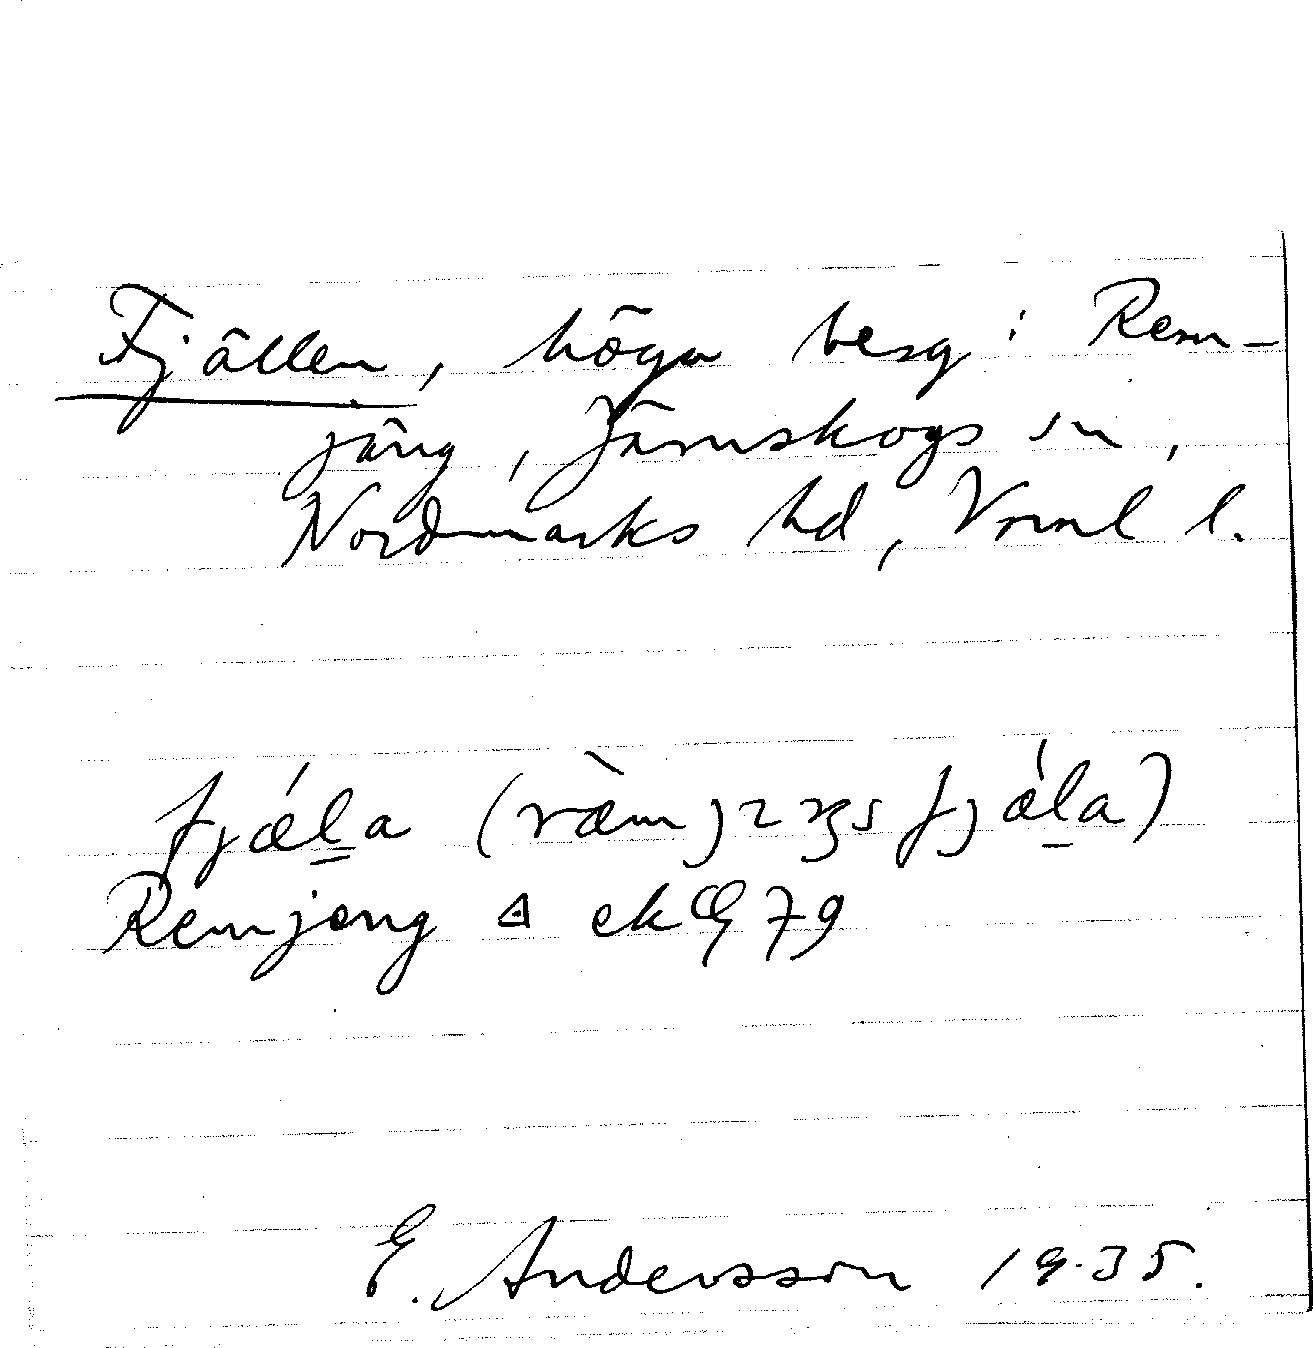 Fjällen, höga berg i Rem-
jäng, Järnskogs sn,
Nordmarks hd, Vrml l.
fjǽl̲a (ræ̀mjɿŋs fjǽl̲a)
Remjäng ek 79
E. Andersson 1935.